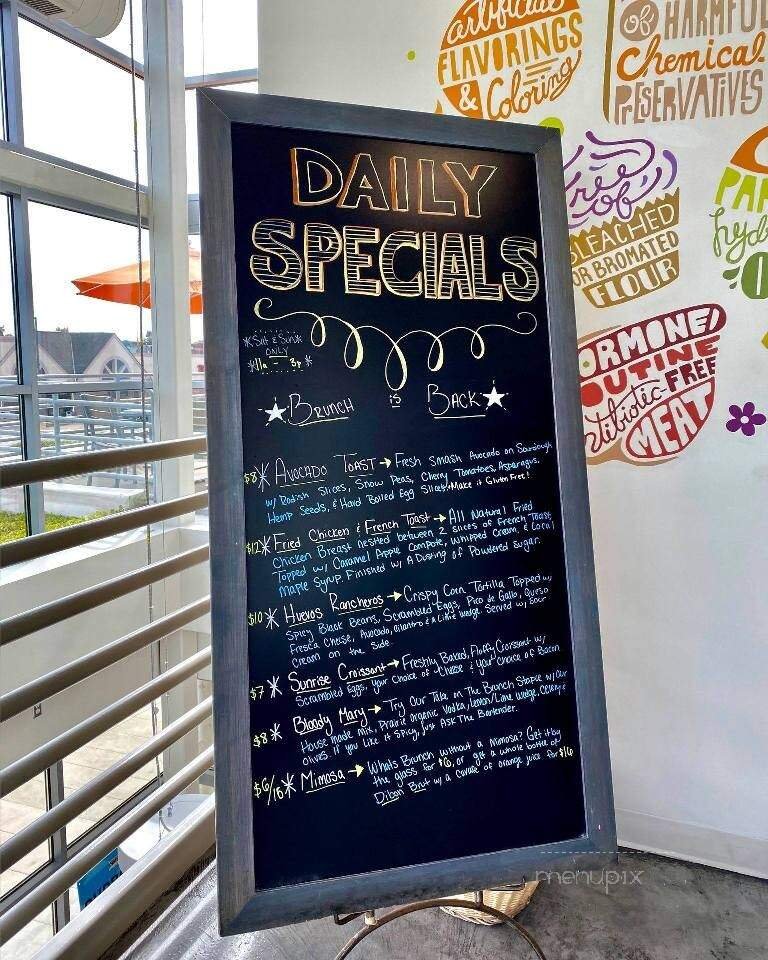 artificial
FLAVORINGS
& Coloring
OF HARMFUL
Chemical
PRESERVATIVES
free
of
BLEACHED
OR BROMATED
FLOUR
PAR
hyd
ORMONE/
OUTINE
tibiotic-FREE
MEAT
DAILY
SPECIALS
*Sat & Sun*
ONLY
*11a - 3p*
★ BRUNCH is BACK ★
$8* AVOCADO TOAST → Fresh Smash Avocado on Sourdough
w/ Radish Slices, Snow Peas, Cherry Tomatoes, Asparagus,
Hemp Seeds, & Hard Boiled Egg Slices. *Make it Gluten Free!
$12* Fried Chicken & French Toast → All Natural Fried
Chicken Breast nested between 2 slices of French Toast
Topped w/ Caramel Apple Compote, Whipped Cream, &
Maple Syrup. Finished w/ A Dusting of Powdered Sugar.
$10* Huevos Rancheros → Crispy Corn Tortilla Topped w/
Spicy Black Beans, Scrambled Eggs, Pico de Gallo, Queso
Fresca Cheese, Avocado, Cilantro & A Lime Wedge. Served w/ Sour
Cream on the Side.
$7* Sunrise Croissant → Freshly Baked, Fluffy Croissant w/
Scrambled Eggs, your Choice of Cheese & your Choice of Bacon
$8* Bloody Mary → Try Our Take on The Brunch Staple w/ Our
House made mix, Prairie organic Vodka, Lemon/Lime Wedge, Celery &
olives. If you Like it Spicy, Just Ask The Bartender.
$6/16* Mimosa → Whats Brunch without a Mimosa? Get it by
the glass for $6, or get a whole bottle of
Dibon Brut w/ a carafe of orange juice for $16
menupix